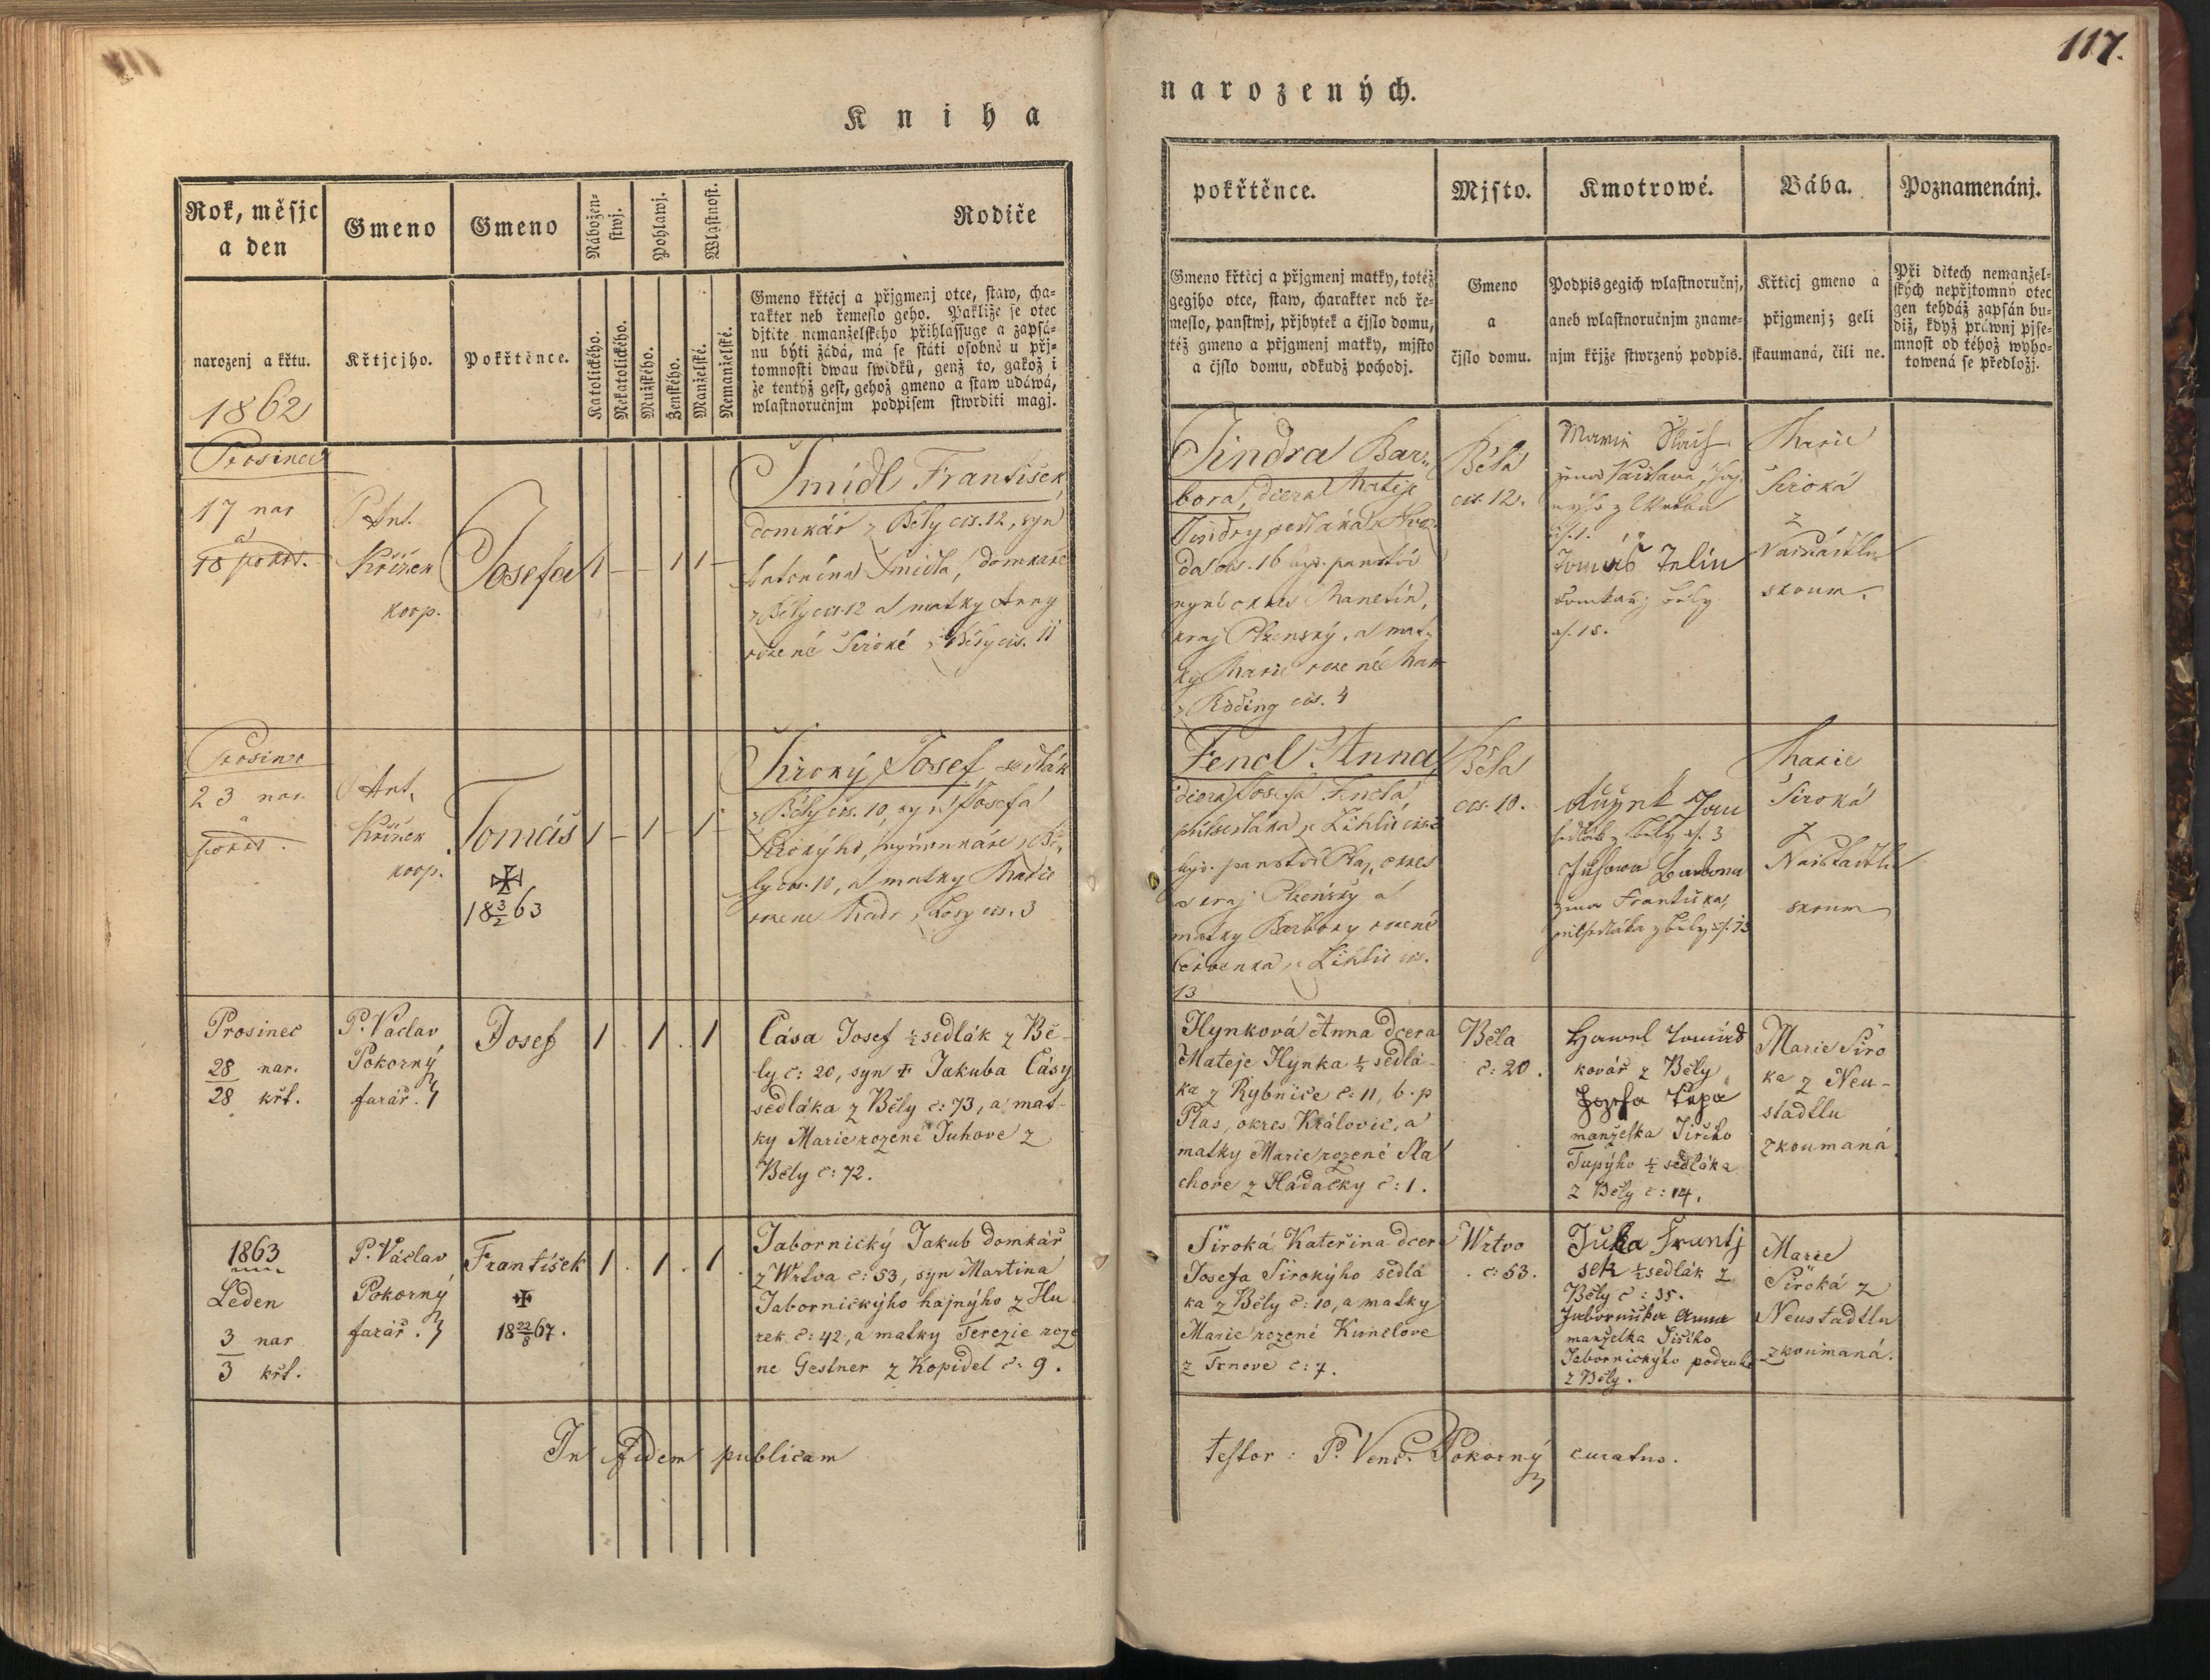 117.
Kniha
narozených.
Rok, měsjc
a den
narozenj a křtu.
1862
Gmeno
Křtjcjho.
Gmeno
Pokřtěnce.
Nábožen-
stwj.
Katolického.
Nekatolického.
Pohlawj.
Mužského.
Ženského.
Wlastnost.
Manželské.
Nemanželské.
Rodiče
Gmeno křtěcj a přjgmenj otce, staw, cha-
rakter neb řemeslo geho. Pakliže se otec
djtěte nemanželského přihlassuge a zapsá-
nu býti žádá, má se státi osobně u přj-
tomnosti dwau swědků, genž to, gakož i
že tentýž gest, gehož gmeno a staw udáwá,
wlastnoručnjm podpisem stwrditi magj.
pokřtěnce.
Gmeno křtěcj a přjgmenj matky, totéž
gegjho otce, staw, charakter neb ře-
meslo, panstwj, přjbytek a čjslo domu,
též gmeno a přjgmenj matky, mjsto
a čjslo domu, odkudž pochodj.
Mjsto.
Gmeno
a
čjslo domu.
Kmotrowé.
Podpis gegich wlastnoručnj,
aneb wlastnoručnjm zname-
njm křjže stwrzený podpis.
Bába.
Křticj gmeno a
přjgmenj; geli
skaumaná, čili ne.
Poznamenánj.
Při dětech nemanžel-
ských nepřjtomný otec
gen tehdáž zapsán bu-
diž, když práwnj pjse-
mnost od téhož wyho-
towená se předložj.
Prosinec
17 nar
a
18 pokřt.
P. Ant.
Křížek
koop.
Josefa
1 — 1 1 —
Šmídl František,
domkář z Běly čís. 12, syn
Antonína Šmídla, domkáře
z Běly čís. 12 a matky Anny
rozené Široké z Běly čís. 11
Jindra Bar-
bora, dcera Matěje
Jindry sedláka
čís. 16 býv. panství
nyní okres Manetín,
kraj Plzenský, a mat-
ky Marie rozené
čís. 4
Bělá
čís. 12.
Tomáš Jelín
domkář z Běly
čs. 15.
Marie
Široká
z
Naištádtlu
zkoum.
Prosinec
23 nar.
a
pokřt.
P. Ant.
Křížek
koop.
Tomáš
18 3/2 63
1 — 1 — 1 —
Široký Josef, sedlák
z Běly čís. 10, syn Josefa
Širokýho, výminkáře z Bě-
ly čís. 10, a matky Marie
rozené čís. 3
Fencl Anna,
dcera Josefa Fencla
půlsedláka z Lihlic
býv. panství Plas, okres
a kraj Plzenský a
matky Barbory rozené
Červenka z Lihlic čís.
13
Běla
čís. 10.
Jan
sedlák z Běly čs. 3
Juhowa Barbora
žena Františka,
půlsedláka z Běly čs. 73
Marie
Široká
z
Naištádtlu
zkoum
Prosinec
28 nar.
28 křt.
P. Václav
Pokorný
farář.
Josef
1 . 1 . 1
Cása Josef ½ sedlák z Bě-
ly č: 20, syn † Jakuba Cásy
sedláka z Běly č: 73, a mat-
ky Marie rozené Juhove z
Běly č: 72.
Hynková Anna dcera
Mateje Hynka ½ sedlá-
ka z Rybnice č: 11, b. p
Plas, okres Královic, a
matky Marie rozené Ma
chove z Hádačky č: 1.
Běla
č: 20.
Hawel Tomáš
kovář z Běly
Jozefa Tupa
manželka Jiřího
Tupýho ½ sedláka
z Běly č: 14.
Marie Siro
ka z Neu-
stadtlu
zkoumaná.
1863
Leden
3 nar
3 křt.
P. Václav
Pokorný
farář.
František
18 22/8 67.
1 . 1 . 1 .
Jabornický Jakub domkář
z Wrtva č: 53, syn Martina
Jabornickýho hajnýho z Hu
rek č: 42, a matky Terezie roze
ne Gestner z Kopidel č: 9.
Široká Kateřina dcera
Josefa Širokýho sedlá
ka z Běly č: 10, a matky
Marie rozené Kumelove
z Trnove č: 7.
Wrtvo
č: 53.
Juha Frantj
sek ½ sedlák z
Běly č: 35.
Jabornicka Anna
manželka Jiřího
Jabornickýho podruha
z Běly.
Marie
Široká z
Neustadtlu
zkoumaná.
In fidem publicam
testor: P. Venc. Pokorný curatus.